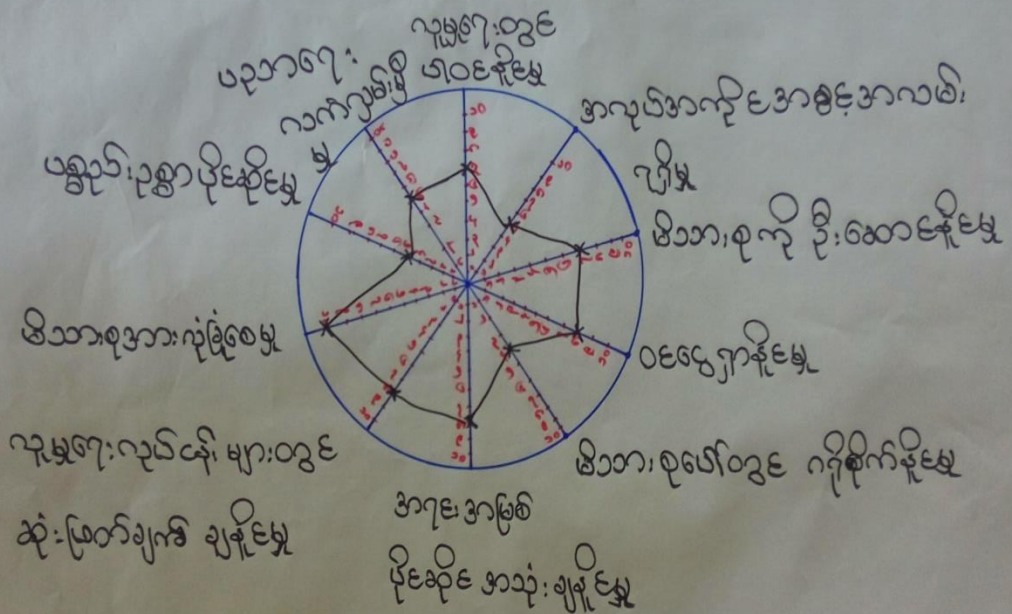 လူမှုရေးတွင်
ပါဝင်နိုင်မှု
အလုပ်အကိုင်အခွင့်အလမ်း
ရရှိမှု
မိသားစုကို ဦးဆောင်နိုင်မှု
ဝင်ငွေရှာနိုင်မှု
မိသားစုပေါ်တွင် ဂရုစိုက်နိုင်မှု
အရင်းအမြစ်
ပိုင်ဆိုင် အသုံးချနိုင်မှု
လူမှုရေးလုပ်ငန်းများတွင်
ဆုံးဖြတ်ချက် ချနိုင်မှု
မိသားစုအားလုံခြုံစေမှု
ပစ္စည်းဥစ္စာပိုင်ဆိုင်မှု
ပညာရေး
လက်လှမ်းမှီ
မှု